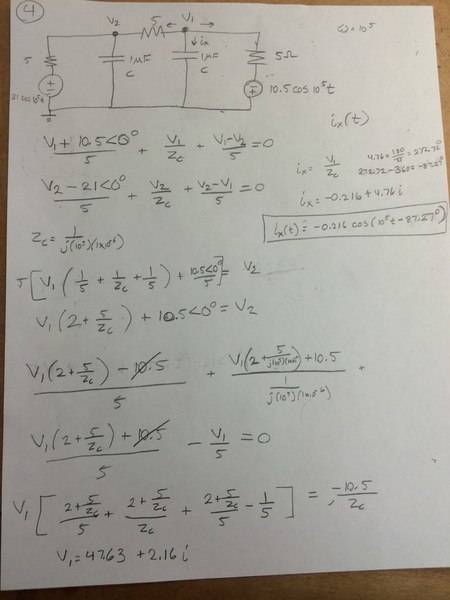 4
V₂ 5 V₁
ω = 10⁵
5 1μF C ↓ iₓ 1μF C 5Ω
21 cos 10⁵t 10.5 cos 10⁵t
iₓ(t)
(V₁ + 10.5<0°)/5 + V₁/Z_C + (V₁-V₂)/5 = 0
iₓ = V₁/Z_C 4.76 × 180/π = 272.73°
272.72 - 360 = -87.27°
(V₂ - 21<0°)/5 + V₂/Z_C + (V₂-V₁)/5 = 0
iₓ = -0.216 + 4.76 i
Z_C = 1/(j(10⁵)(1×10⁻⁶))
iₓ(t) = -0.216 cos(10⁵t - 87.27°)
5[V₁(1/5 + 1/Z_C + 1/5) + 10.5<0°/5] = V₂
V₁(2 + 5/Z_C) + 10.5<0° = V₂
(V₁(2 + 5/Z_C) - 10.5)/5 + (V₁(2 + 5/(1/(j(10⁵)(1×10⁻⁶)))) + 10.5)/(1/(j(10⁵)(1×10⁻⁶))) +
(V₁(2 + 5/Z_C) + 10.5)/5 - V₁/5 = 0
V₁[(2 + 5/Z_C)/5 + (2 + 5/Z_C)/Z_C + (2 + 5/Z_C)/5 - 1/5] = -10.5/Z_C
V₁ = 47.63 + 2.16 i